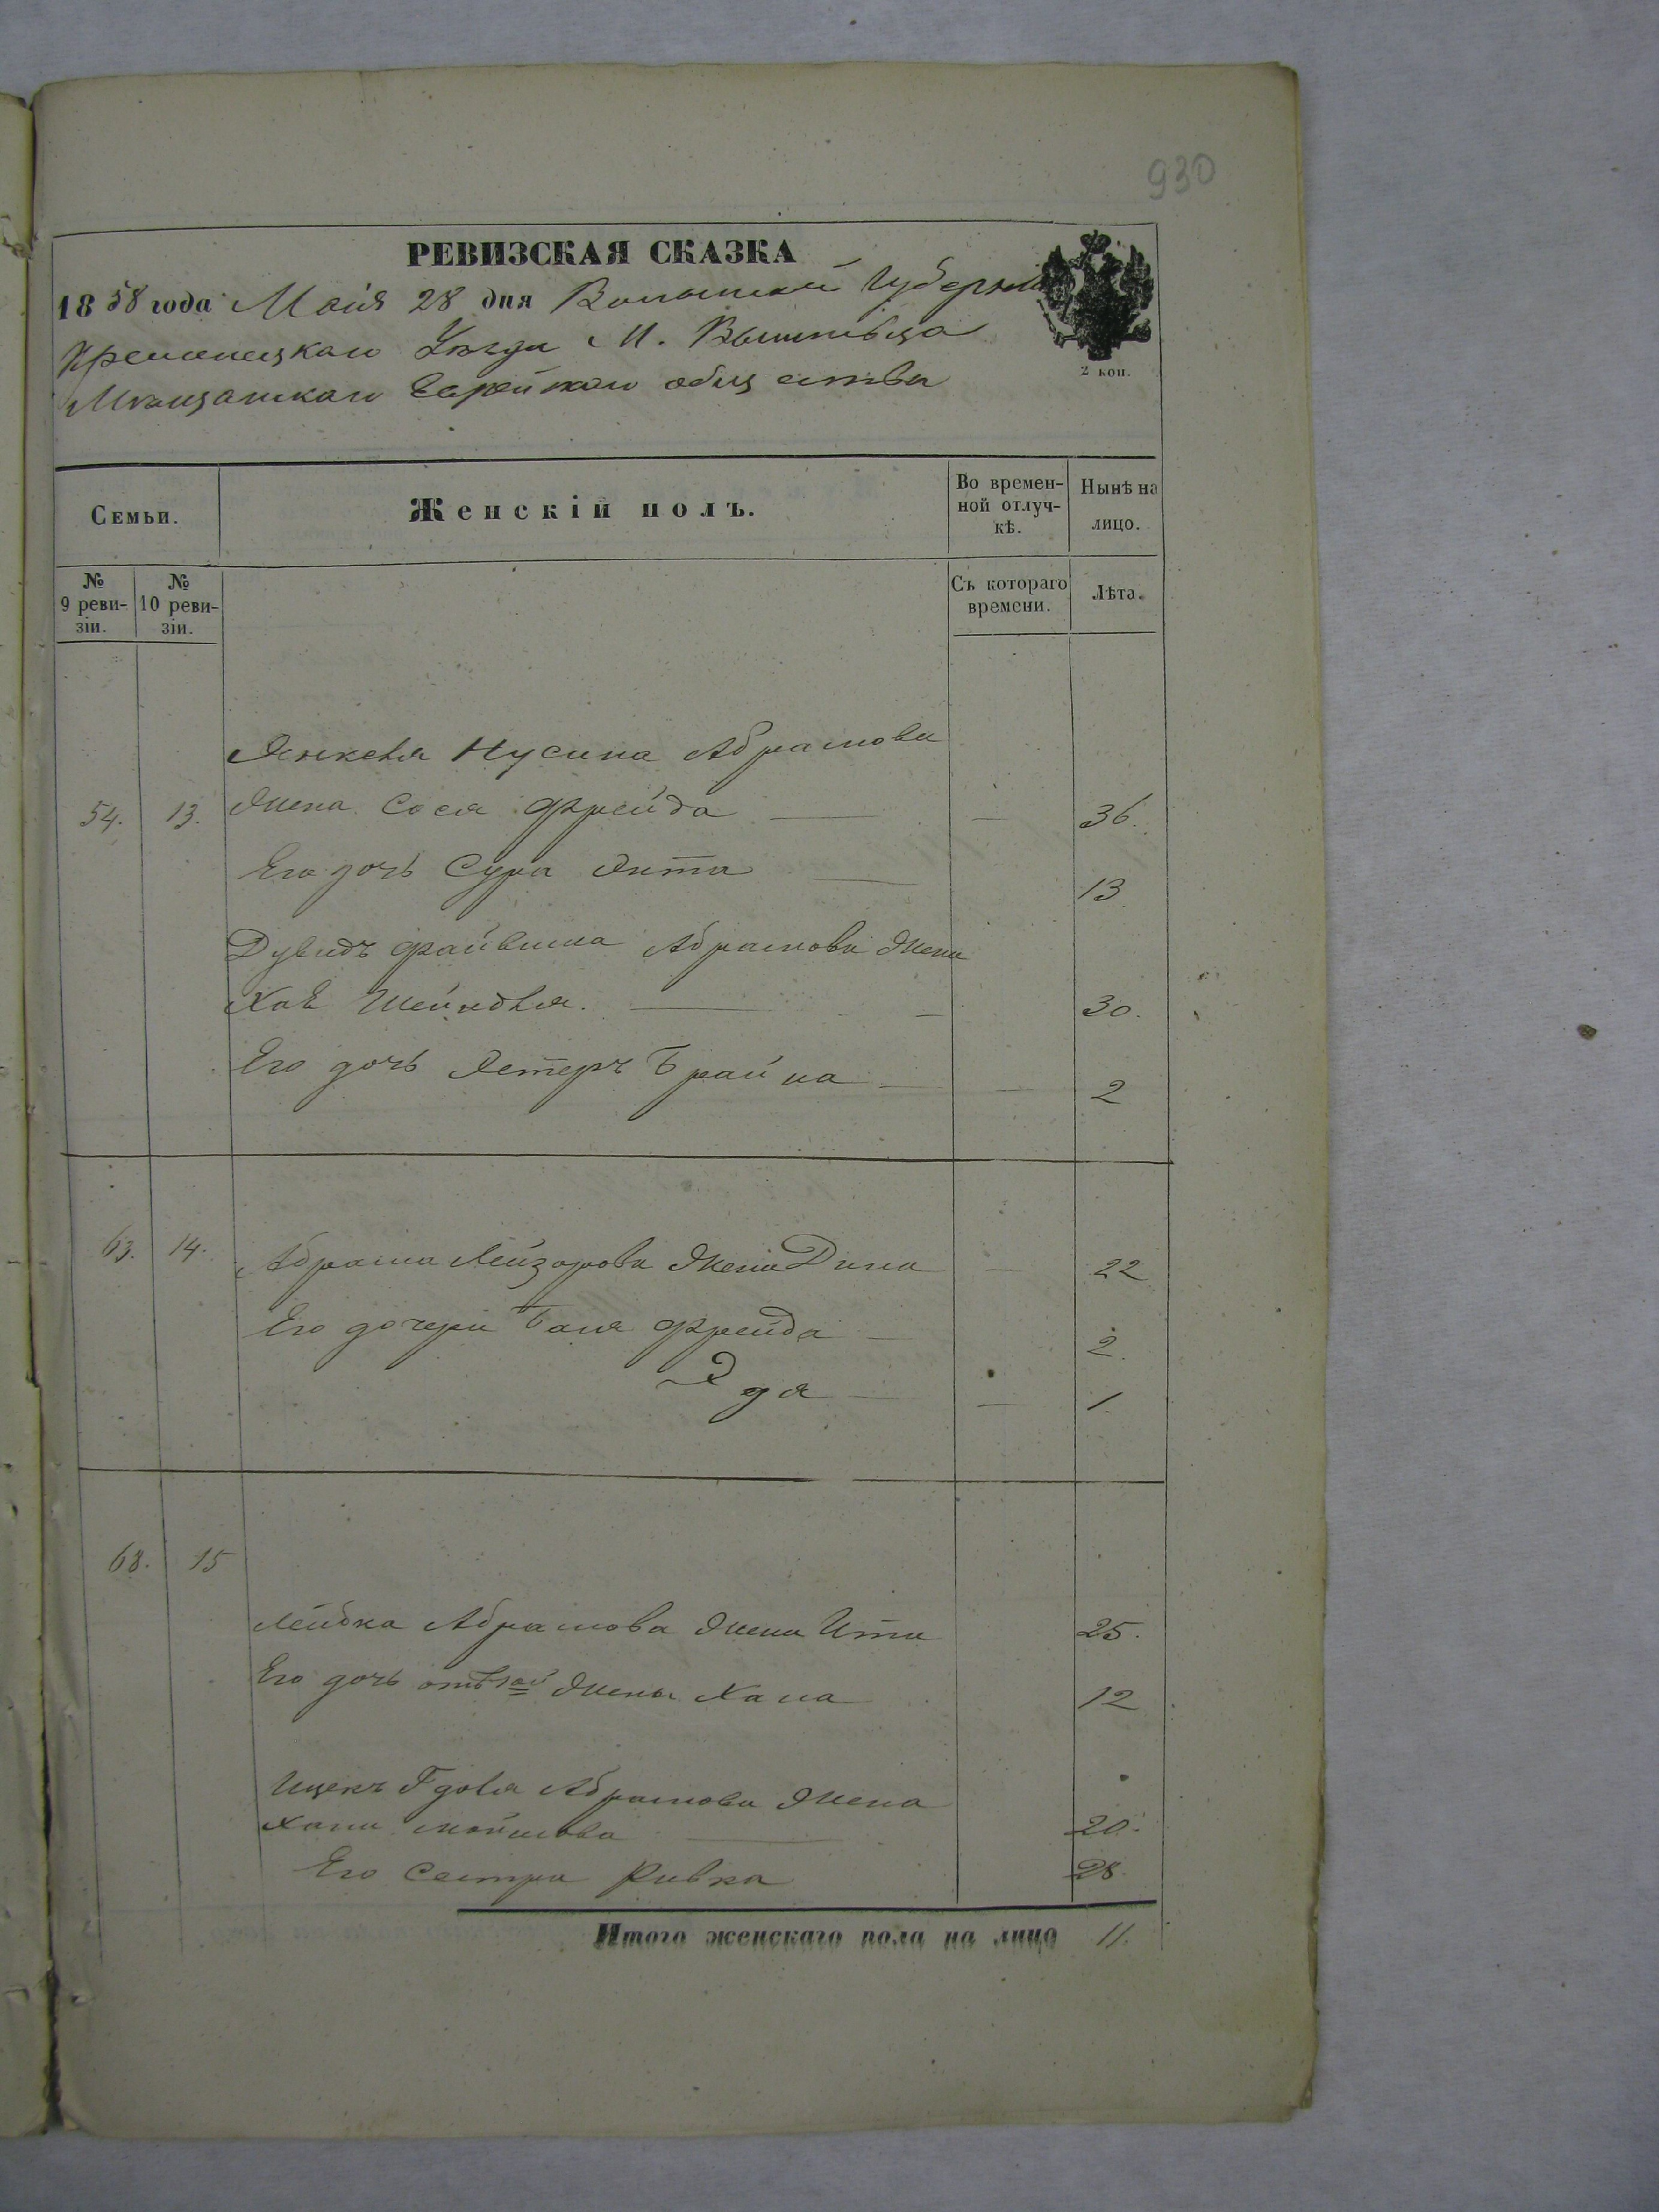 930
РЕВИЗСКАЯ СКАЗКА
1858 года Маія 28 дня Волынской Губерніи
Кременецкаго Уѣзда М. Вышгородка
Мѣщанскаго Еврейскаго общества
2 коп.
Семьи.
Женскій полъ.
Во времен-
ной отлуч-
кѣ.
Нынѣ на
лицо.
№
9 реви-
зіи.
№
10 реви-
зіи.
Съ котораго
времени.
Лѣта.
Янкеля Нусина Абрамова
54. 13. Жена Сося Фрейда — — 36.
Его дочь Сура Ента — 13
Дувидъ Файвиша Абрамова Жена
Хая Шейндля. — — 30.
Его дочь Эстеръ Брайна — — 2
63. 14. Абрама Лейзорова Жена Дина — 22
Его дочери Бася Фрейда — 2.
Эдя — — 1.
68. 15
Лейбка Абрамова Жена Ита 25.
Его дочь отъ 1ой Жены Хана 12
Ицекъ Абрамова Жена
Хана — 20.
Его Сестра Ривка 28.
Итого женскаго пола на лицо 11.